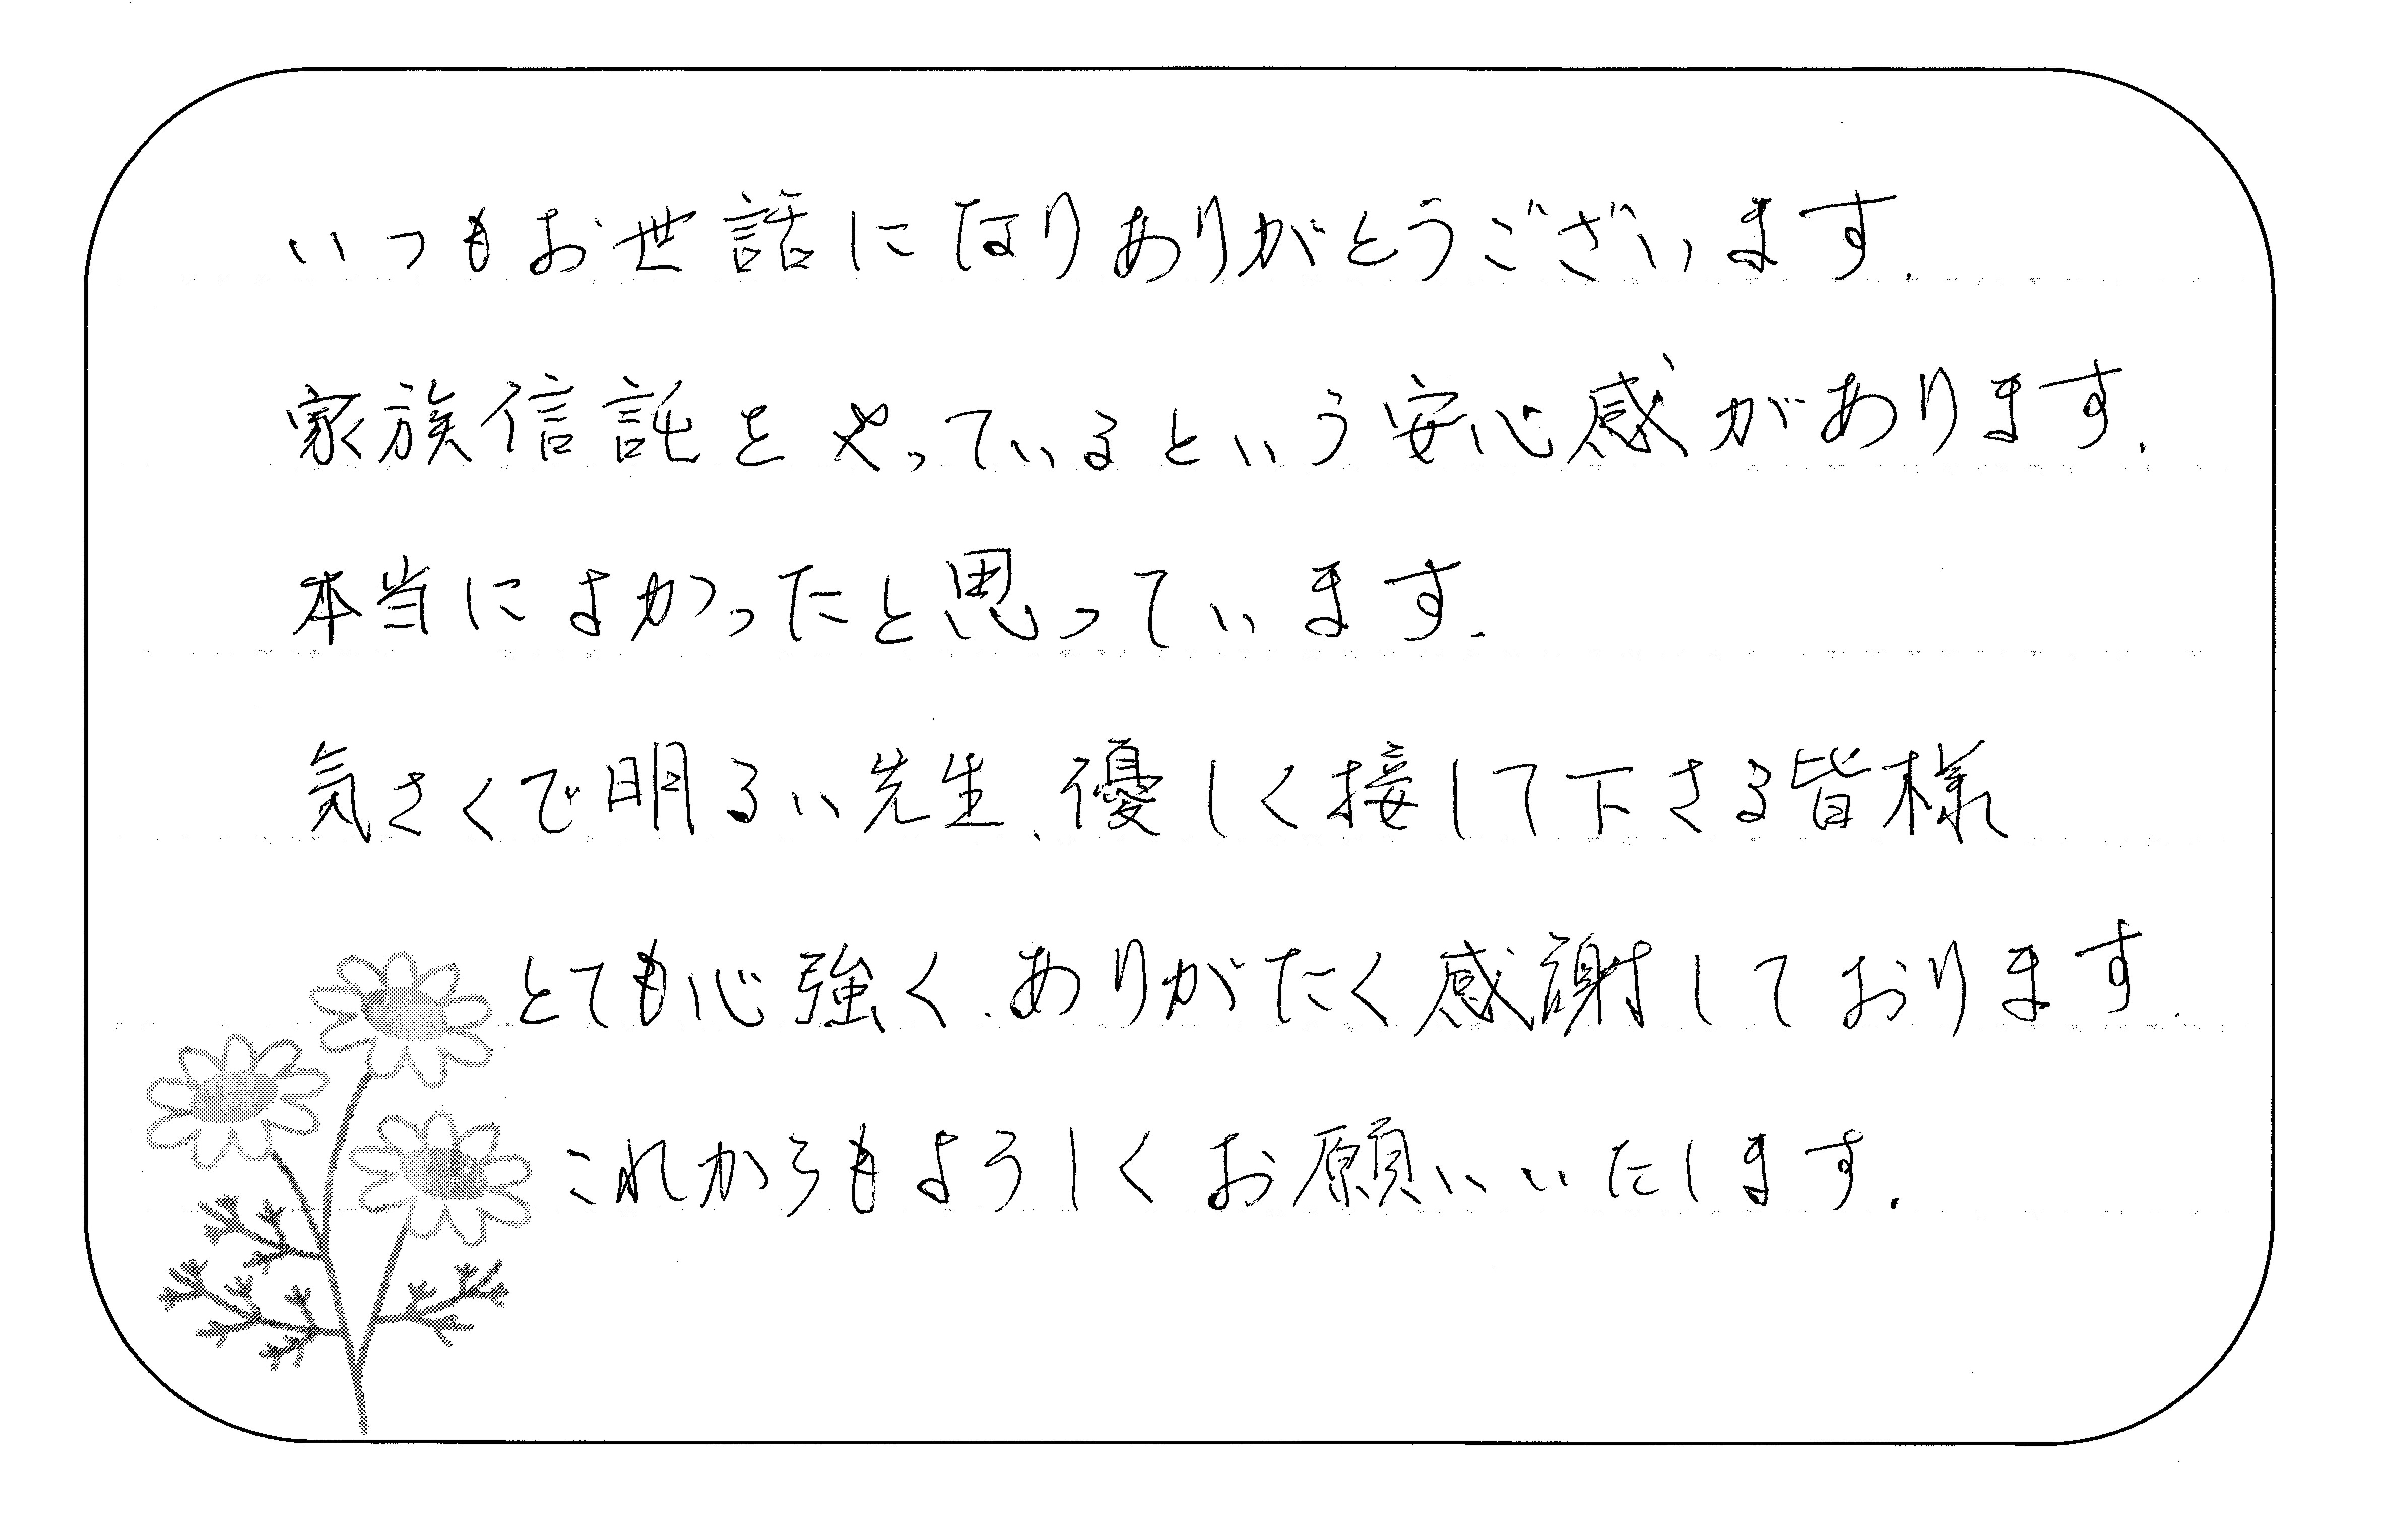 いつもお世話になりありがとうございます.
家族信託をやっているという安心感があります.
本当によかったと思っています.
気さくで明るい先生、優しく接して下さる皆様
とても心強く、ありがたく感謝しております.
これからもよろしくお願いいたします.